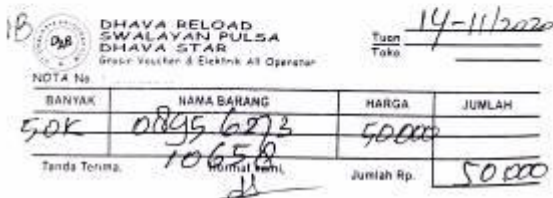 DHAVA RELOAD
SWALAYAN PULSA
DHAVA STAR
Grosir Voucher & Elektrik All Operator
14-11/2020
Tuan
Toko
NOTA No.
BANYAK NAMA BARANG HARGA JUMLAH
50K 0895 6273 50.000
10658
Tanda Terima, Hormat kami, Jumlah Rp. 50 000